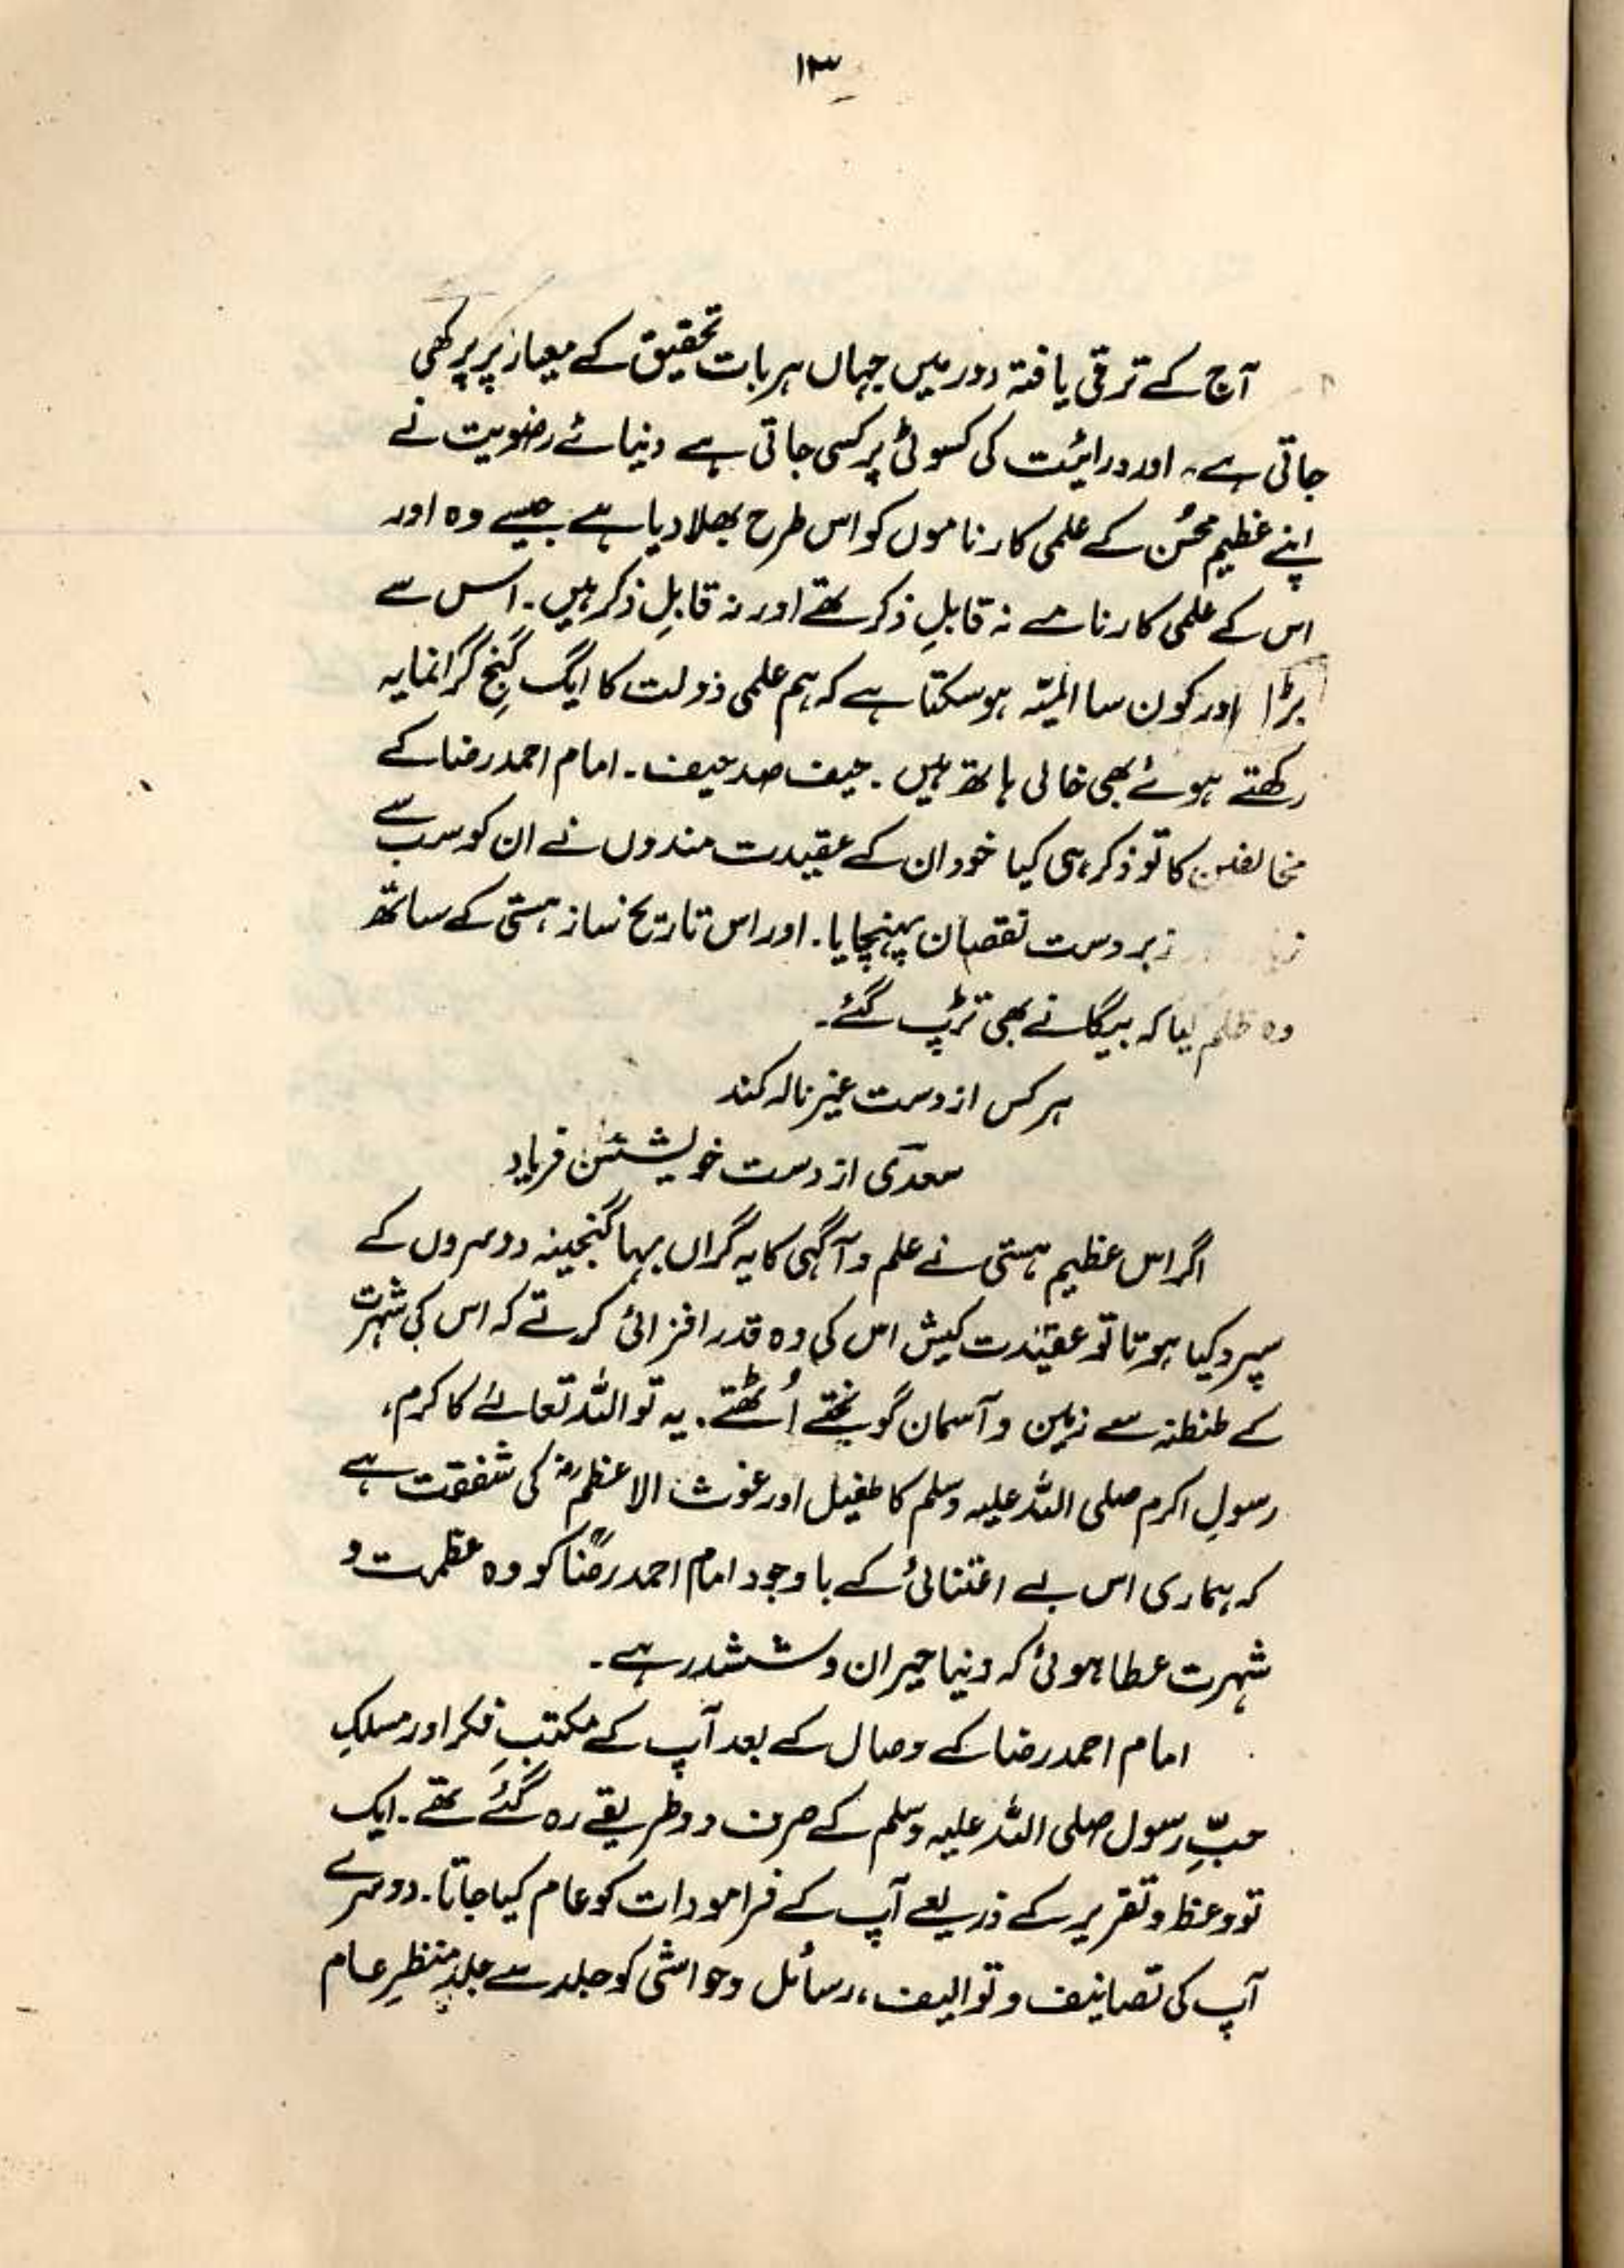 ۱۳
آج کے ترقی یافتہ دور میں جہاں ہر بات تحقیق کے معیار پر پرکھی
جاتی ہے۔ اور درایٔت کی کسوٹی پر کسی جاتی ہے دنیائے رضویت نے
اپنے عظیم محسُن کے علمی کارناموں کو اس طرح بھلا دیا ہے جیسے وہ اور
اس کے علمی کارنامے نہ قابلِ ذکر تھے اور نہ قابلِ ذکر ہیں۔ اس سے
بڑا اور کون سا المیّہ ہو سکتا ہے کہ ہم علمی دولت کا ایگ گنجِ گرانمایہ
رکھتے ہوئے بھی خالی ہاتھ ہیں۔ حیف صد حیف۔ امام احمد رضا کے
مخالفین کا تو ذکر ہی کیا خود ان کے عقیدت مندوں نے ان کو سب سے
زبردست نقصان پہنچایا۔ اور اس تاریخ ساز ہستی کے ساتھ
وہ ظلم کیا کہ بیگانے بھی تڑپ گئے۔
ہر کس از دست غیر نالہ کند
سعدؔی از دست خویشتن فریاد
اگر اس عظیم ہستی نے علم و آگہی کا یہ گراں بہا گنجینہ دوسروں کے
سپرد کیا ہوتا تو عقیدت کیش اس کی وہ قدر افزائی کرتے کہ اس کی شہرت
کے طنطنہ سے زمین و آسمان گونجتے اُٹھتے۔ یہ تو اللہ تعالےٰ کا کرم،
رسولِ اکرم صلی اللہ علیہ وسلم کا طفیل اور غوث الاعظمؓ کی شفقت ہے
کہ ہماری اس بے اعتنائی کے باوجود امام احمد رضاؒ کو وہ عظمت و
شہرت عطا ہوئی کہ دنیا حیران و ششدر ہے۔
امام احمد رضا کے وصال کے بعد آپ کے مکتبِ فکر اور مسلکِ
حبِّ رسول صلی اللہ علیہ وسلم کے صرف دو طریقے رہ گئے تھے۔ ایک
تو وعظ و تقریر کے ذریعے آپ کے فرامودات کو عام کیا جاتا۔ دوسرے
آپ کی تصانیف و توالیف، رسائل و حواشی کو جلد سے جلد منظرِ عام